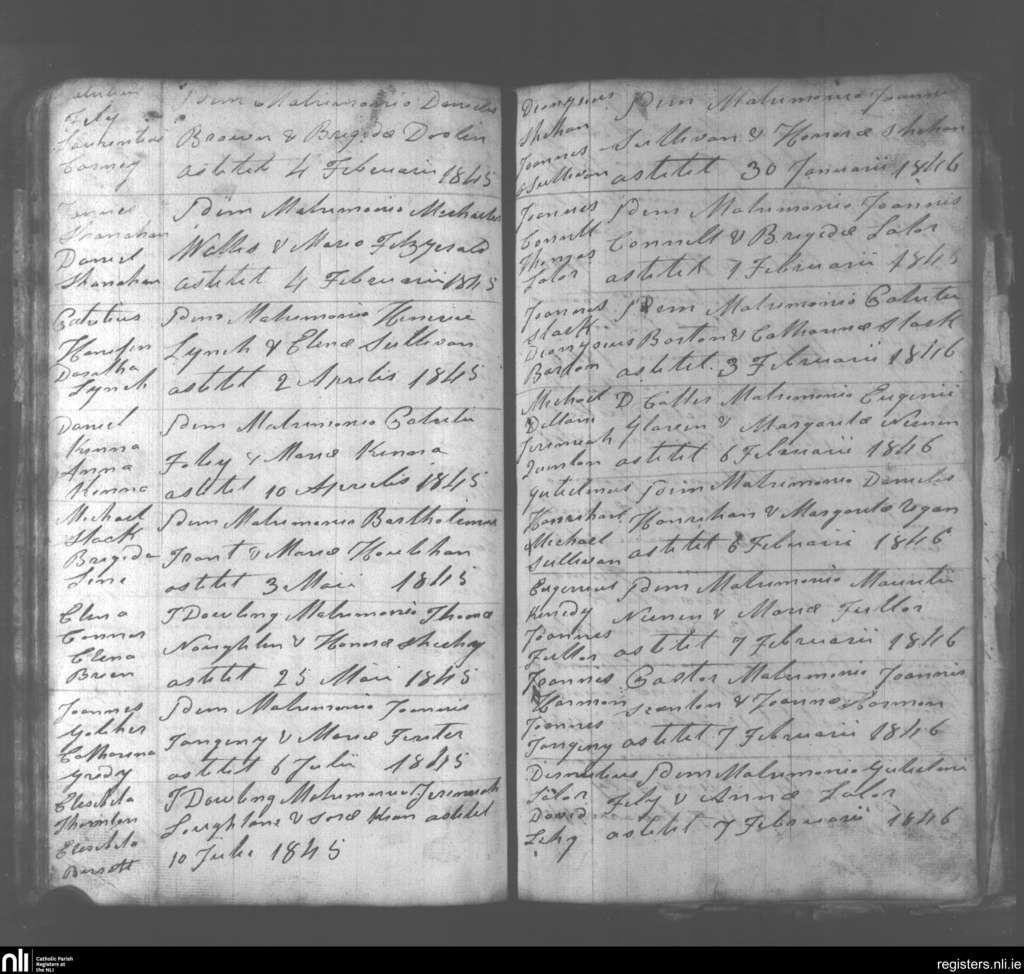 Fely
Idem Matrimonio Danielis
Laurentius
Brown & Brigidæ Doolin
astitit 4 Februarii 1845
Shanahan
Daniel
Shanahan
Idem Matrimonio Michaelis
Walles & Maria Fitzgerald
astitit 4 Februarii 1845
Patritius
Hanifin
Doratha
Lynch
Idem Matrimonio Henricii
Lynch & Elenæ Sullivan
astitit 2 Aprilis 1845
Daniel
Kinna
Anna
Kinna
Idem Matrimonio Patritii
Foley & Mariæ Kinna
astitit 10 Aprilis 1845
Michael
Slack
Brigida
Line
Idem Matrimonio Bartholimus
Trant & Mariæ Houlihan
astitit 3 Maii 1845
Elena
Connor
Elena
Brien
T Dowling Matrimonio Thomæ
Naughten & Honoræ Sheehy
astitit 25 Maii 1845
Joannes
Golcher
Catharina
Gredy
Idem Matrimonio Joannis
Tangeny & Mariæ Ferter
astitit 6 Julii 1845
Elisibita
Thornton
Elisibita
T Dowling Matrimonio Jeremiah
Loughlane & astitit
10 Julii 1845
Dionysius
Shehan
Joannes
Sullivan
Idem Matrimonio Joannis
Sullivan & Honoræ Shehan
astitit 30 Januarii 1846
Joannes
Connell
Thomas
Lalor
Idem Matrimonio Joannis
Connell & Brigidæ Lalor
astitit 1 Februarii 1845
Joannes
Slack
Dionysius
Barton
Idem Matrimonio Patritii
Barton & Catharinæ Slack
astitit 3 Februarii 1846
Michael
Dillane
Jeremiah
Quinlan
D Matrimonio Eugenii
& Margaritæ
astitit 6 Februarii 1846
Gulielmus
Hourihan
Michael
Sullivan
Idem Matrimonio Danielis
Hourihan & Margaritæ Regan
astitit 6 Februarii 1846
Eugenius
Kenedy
Joannes
Fuller
Idem Matrimonio Mauritii
& Mariæ Fuller
astitit 7 Februarii 1846
Joannes
Harmon
Joannes
Tangeny
Pastor Matrimonio Joannis
Scanlon & Joannæ Harmon
astitit 7 Februarii 1846
Lalor
David
Lehy
Idem Matrimonio Gulielmi
Fely & Annæ Lalor
astitit 7 Februarii 1846
nli
Catholic Parish
Registers at
the NLI
registers.nli.ie